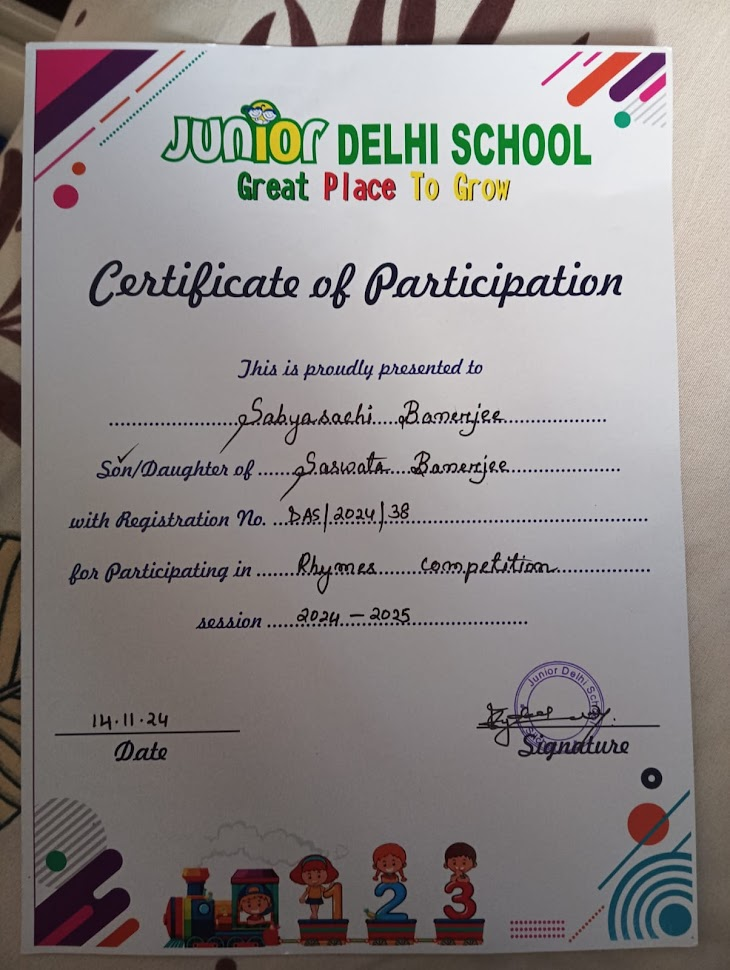 JUNIOR DELHI SCHOOL
Great Place To Grow
Certificate of Participation
This is proudly presented to
Sabyasachi Banerjee
Son/Daughter of Saswata Banerjee
with Registration No. DAS/2024/38
for Participating in Rhymes competition
session 2024-2025
14.11.24
Date
Junior Delhi School
Signature
1 2 3